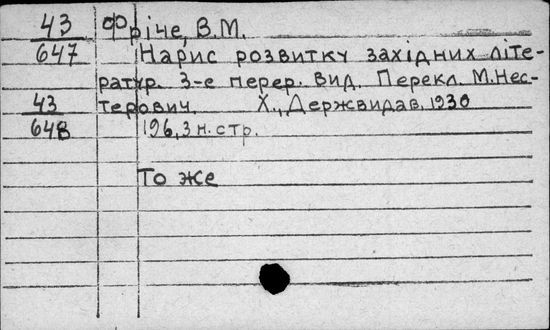 43 Фріче, В.М.
647 Нарис розвитку західних літе-
ратур. 3-е перер. вид. Перекл. М.Нес-
43 терович. Х., Держвидав, 1930
648 196, 3 н. стр.
То же